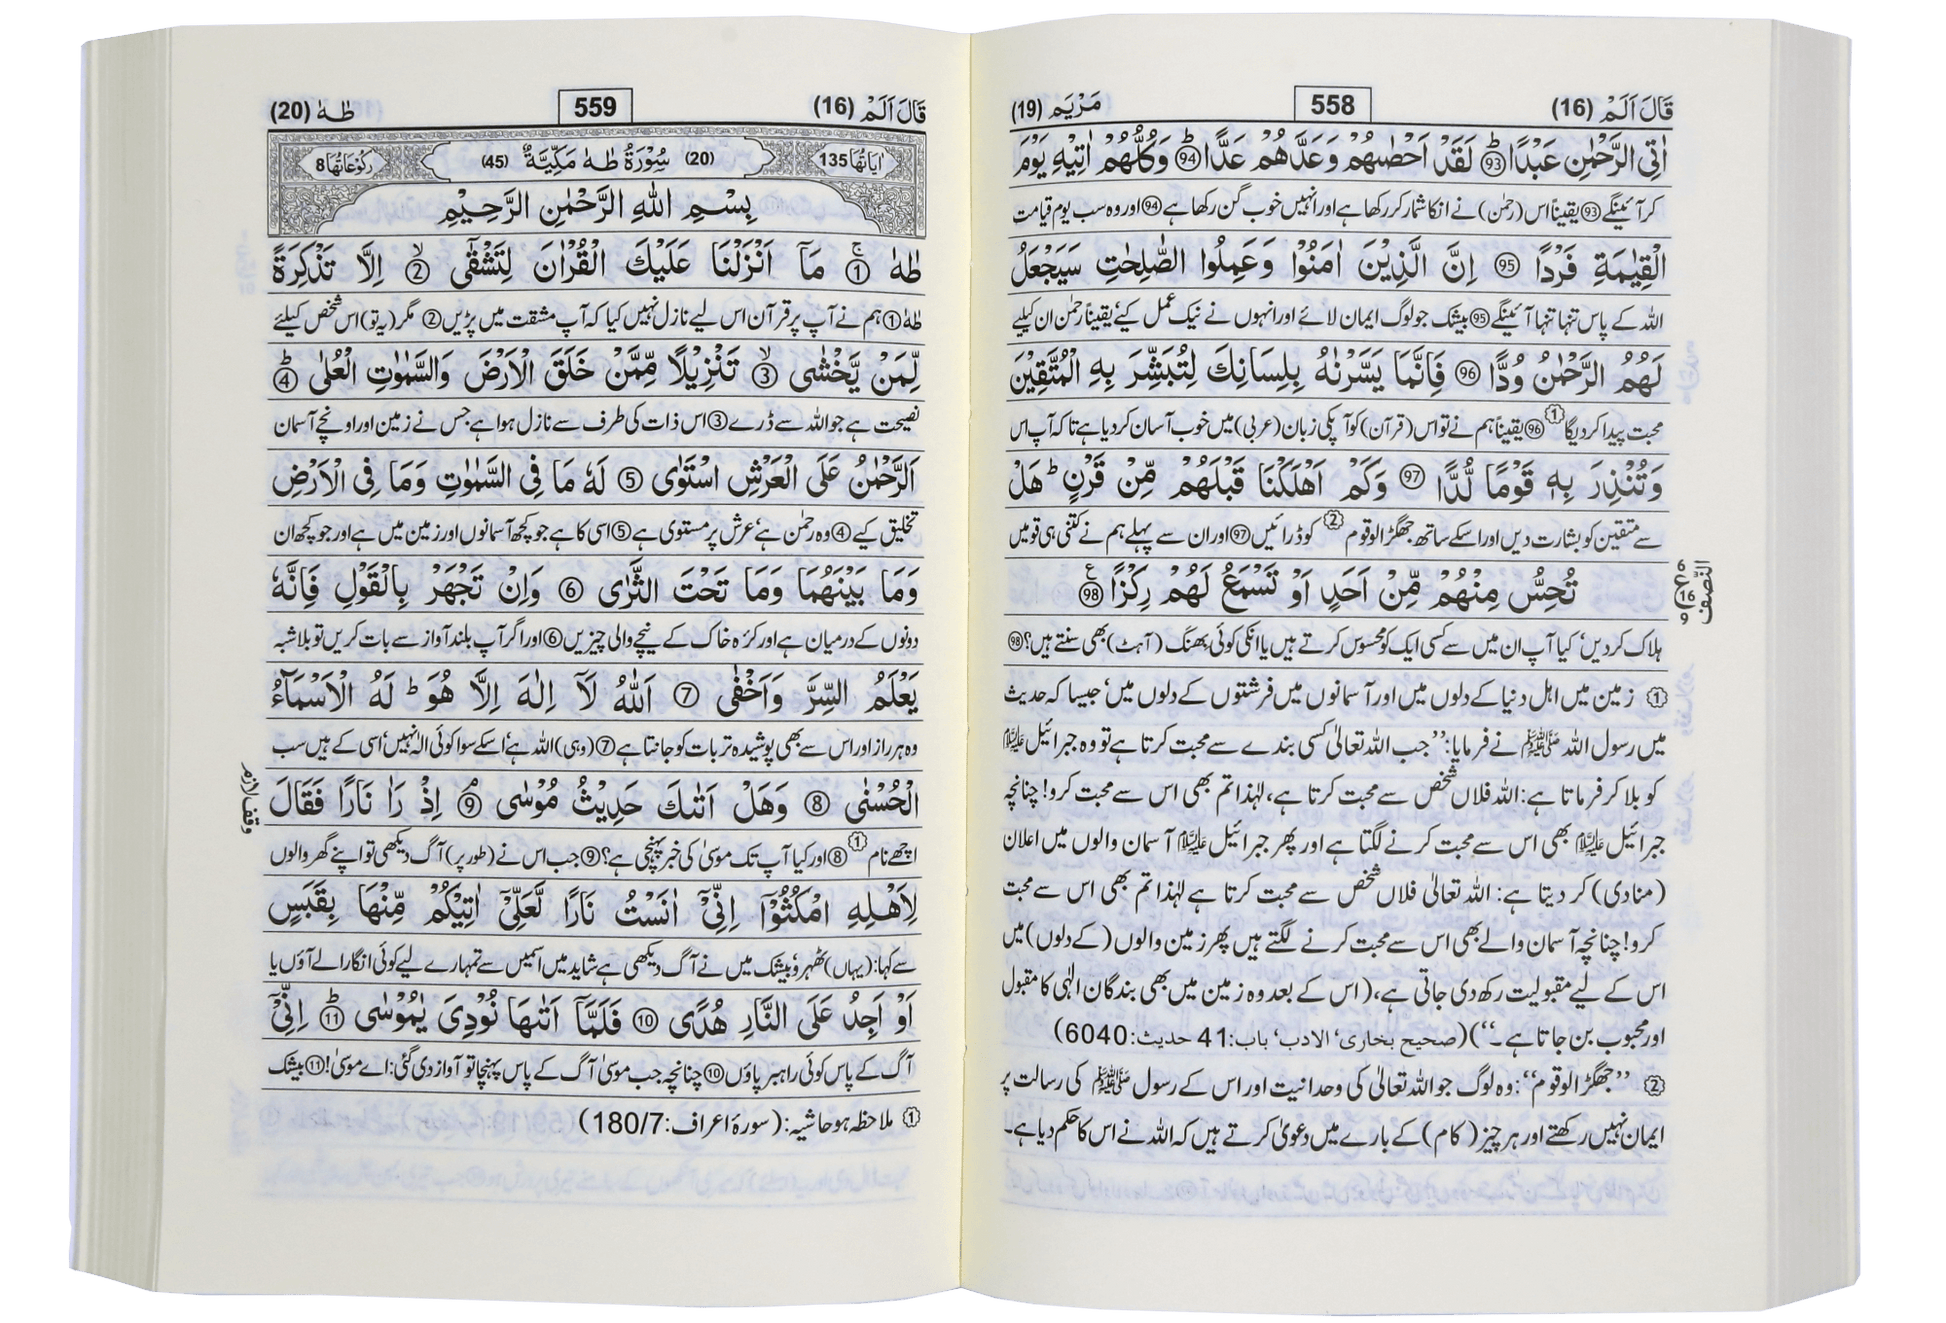 قَالَ اَلَمْ (16)
558
مَرْيَم (19)
اٰتِي الرَّحْمٰنِ عَبْدًا ۝93 لَقَدْ اَحْصٰىهُمْ وَعَدَّهُمْ عَدًّا ۝94 وَكُلُّهُمْ اٰتِيْهِ يَوْمَ
کر آئینگے 93 یقیناً اس (رحمٰن) نے انکا شمار کر رکھا ہے اور انہیں خوب گن رکھا ہے 94 اور وہ سب یوم قیامت
الْقِيٰمَةِ فَرْدًا ۝95 اِنَّ الَّذِيْنَ اٰمَنُوْا وَعَمِلُوا الصّٰلِحٰتِ سَيَجْعَلُ
اللہ کے پاس تنہا تنہا آئینگے 95 بیشک جو لوگ ایمان لائے اور انہوں نے نیک عمل کیے‘ یقیناً رحمٰن ان کیلیے
لَهُمُ الرَّحْمٰنُ وُدًّا ۝96 فَاِنَّمَا يَسَّرْنٰهُ بِلِسَانِكَ لِتُبَشِّرَ بِهِ الْمُتَّقِيْنَ
محبت پیدا کر دیگا 1 96 یقیناً ہم نے تو اس (قرآن) کو آپکی زبان (عربی) میں خوب آسان کر دیا ہے تا کہ آپ اس
وَتُنْذِرَ بِهٖ قَوْمًا لُّدًّا ۝97 وَكَمْ اَهْلَكْنَا قَبْلَهُمْ مِّنْ قَرْنٍ ط هَلْ
سے متقین کو بشارت دیں اور اسکے ساتھ جھگڑالو قوم 2 کو ڈرائیں 97 اور ان سے پہلے ہم نے کتنی ہی قومیں
تُحِسُّ مِنْهُمْ مِّنْ اَحَدٍ اَوْ تَسْمَعُ لَهُمْ رِكْزًا ۝98
النّصف
16
ہلاک کر دیں‘ کیا آپ ان میں سے کسی ایک کو محسوس کرتے ہیں یا انکی کوئی بھنگ (آہٹ) بھی سنتے ہیں؟ 98
1 زمین میں اہل دنیا کے دلوں میں اور آسمانوں میں فرشتوں کے دلوں میں‘ جیسا کہ حدیث
میں رسول اللہ ﷺ نے فرمایا: ’’جب اللہ تعالیٰ کسی بندے سے محبت کرتا ہے تو وہ جبرائیل علیہ السلام
کو بلا کر فرماتا ہے: اللہ فلاں شخص سے محبت کرتا ہے، لہٰذا تم بھی اس سے محبت کرو! چنانچہ
جبرائیل علیہ السلام بھی اس سے محبت کرنے لگتا ہے اور پھر جبرائیل علیہ السلام آسمان والوں میں اعلان
(منادی) کر دیتا ہے: اللہ تعالیٰ فلاں شخص سے محبت کرتا ہے لہٰذا تم بھی اس سے محبت
کرو! چنانچہ آسمان والے بھی اس سے محبت کرنے لگتے ہیں پھر زمین والوں (کے دلوں) میں
اس کے لیے مقبولیت رکھ دی جاتی ہے، (اس کے بعد وہ زمین میں بھی بندگان الٰہی کا مقبول
اور محبوب بن جاتا ہے۔‘‘) (صحیح بخاری‘ الادب‘ باب: 41 حدیث: 6040)
2 ’’جھگڑالو قوم‘‘: وہ لوگ جو اللہ تعالیٰ کی وحدانیت اور اس کے رسول ﷺ کی رسالت پر
ایمان نہیں رکھتے اور ہر چیز (کام) کے بارے میں دعویٰ کرتے ہیں کہ اللہ نے اس کا حکم دیا ہے۔
قَالَ اَلَمْ (16)
559
طٰهٰ (20)
اٰيَاتُهَا 135
(20) سُوْرَةُ طٰهٰ مَكِّيَّةٌ (45)
رُكُوْعَاتُهَا 8
بِسْمِ اللّٰهِ الرَّحْمٰنِ الرَّحِيْمِ
طٰهٰ ۝1 مَآ اَنْزَلْنَا عَلَيْكَ الْقُرْاٰنَ لِتَشْقٰٓى ۝2 اِلَّا تَذْكِرَةً
طٰہٰ 1 ہم نے آپ پر قرآن اس لیے نازل نہیں کیا کہ آپ مشقت میں پڑیں 2 مگر (یہ تو) اس شخص کیلئے
لِّمَنْ يَّخْشٰى ۝3 تَنْزِيْلًا مِّمَّنْ خَلَقَ الْاَرْضَ وَالسَّمٰوٰتِ الْعُلٰى ۝4
نصیحت ہے جو اللہ سے ڈرے 3 اس ذات کی طرف سے نازل ہوا ہے جس نے زمین اور اونچے آسمان
اَلرَّحْمٰنُ عَلَى الْعَرْشِ اسْتَوٰى ۝5 لَهٗ مَا فِى السَّمٰوٰتِ وَمَا فِى الْاَرْضِ
تخلیق کیے 4 وہ رحمٰن ہے‘ عرش پر مستوی ہے 5 اسی کا ہے جو کچھ آسمانوں اور زمین میں ہے اور جو کچھ ان
وَمَا بَيْنَهُمَا وَمَا تَحْتَ الثَّرٰى ۝6 وَاِنْ تَجْهَرْ بِالْقَوْلِ فَاِنَّهٗ
دونوں کے درمیان ہے اور کرہ خاک کے نیچے والی چیزیں 6 اور اگر آپ بلند آواز سے بات کریں تو بلا شبہ
يَعْلَمُ السِّرَّ وَاَخْفٰى ۝7 اَللّٰهُ لَآ اِلٰهَ اِلَّا هُوَ ط لَهُ الْاَسْمَآءُ
وہ ہر راز اور اس سے بھی پوشیدہ تر بات کو جانتا ہے 7 (وہی) اللہ ہے‘ اسکے سوا کوئی الٰہ نہیں‘ اسی کے ہیں سب
الْحُسْنٰى ۝8 وَهَلْ اَتٰىكَ حَدِيْثُ مُوْسٰى ۝9 اِذْ رَاٰ نَارًا فَقَالَ
وقف لازم
اچھے نام 1 8 اور کیا آپ تک موسیٰ کی خبر پہنچی ہے؟ 9 جب اس نے (طور پر) آگ دیکھی تو اپنے گھر والوں
لِاَهْلِهِ امْكُثُوْٓا اِنِّىْٓ اٰنَسْتُ نَارًا لَّعَلِّىْٓ اٰتِيْكُمْ مِّنْهَا بِقَبَسٍ
سے کہا: (یہاں) ٹھہرو‘ بیشک میں نے آگ دیکھی ہے شاید میں اسمیں سے تمہارے لیے کوئی انگارا لے آؤں یا
اَوْ اَجِدُ عَلَى النَّارِ هُدًى ۝10 فَلَمَّآ اَتٰىهَا نُوْدِىَ يٰمُوْسٰى ۝11 اِنِّىْٓ
آگ کے پاس کوئی راہبر پاؤں 10 چنانچہ جب موسیٰ آگ کے پاس پہنچا تو آواز دی گئی: اے موسیٰ! 11 بیشک
1 ملاحظہ ہو حاشیہ: (سورۂ اعراف: 180/7)